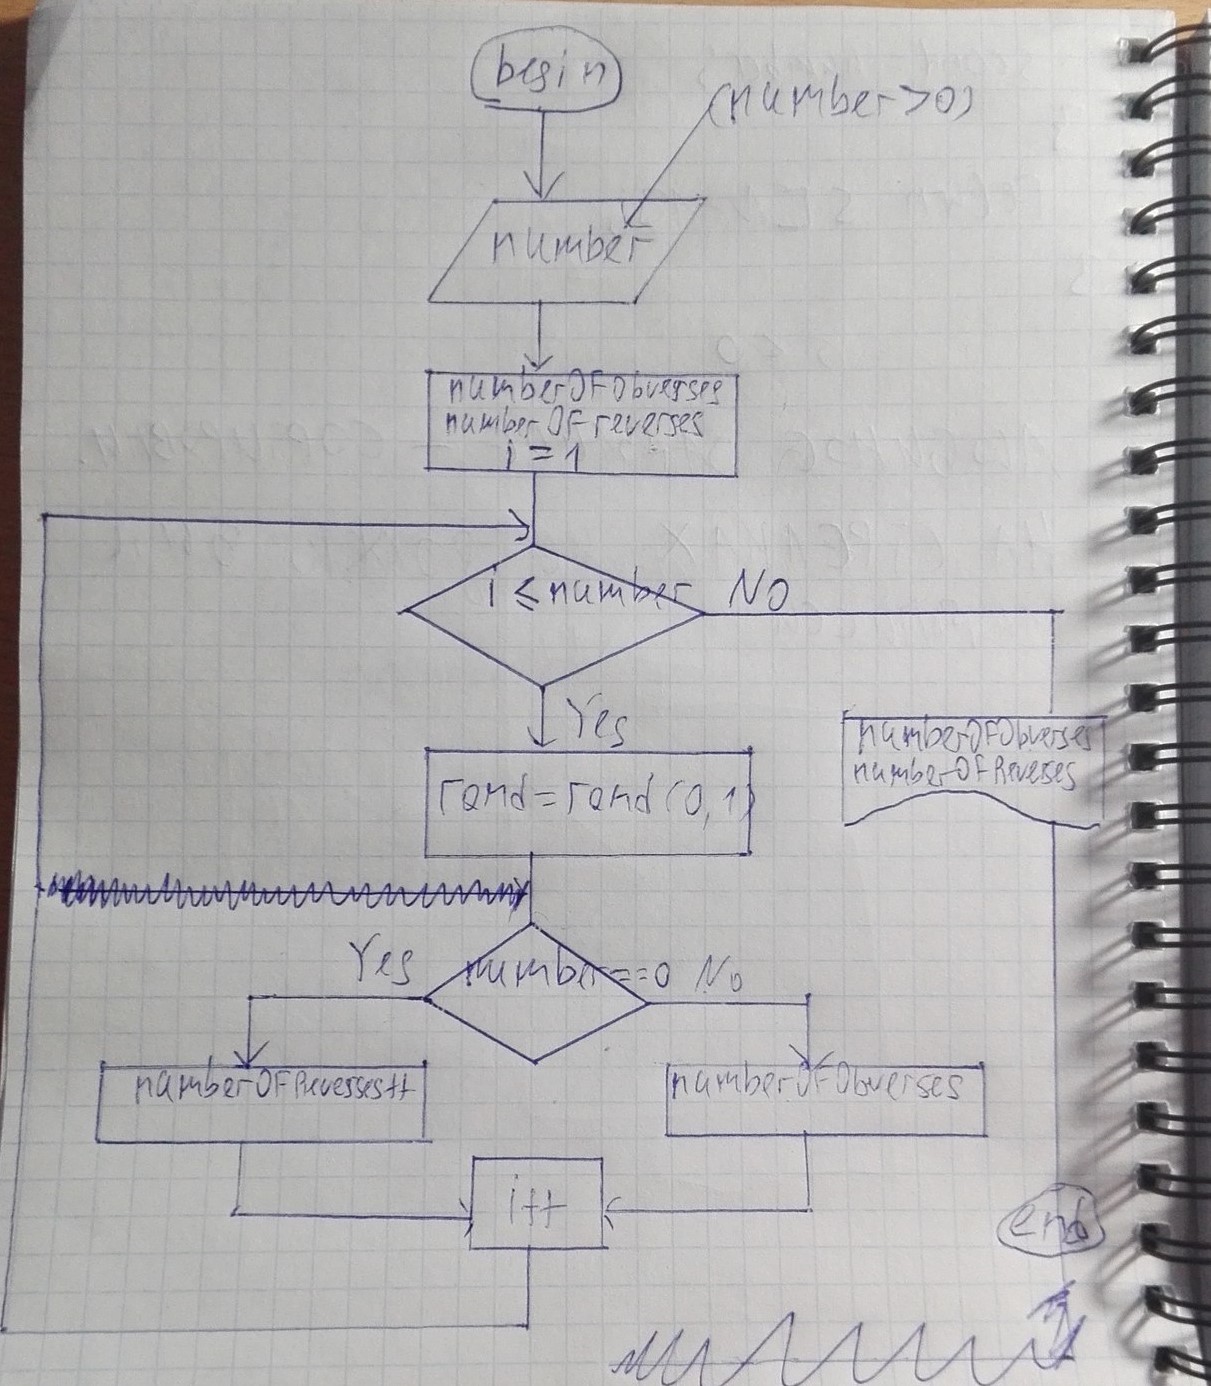 begin
(number>0)
number
numberOFObverses
numberOFreverses
i = 1
i ≤ number
NO
Yes
rand=rand(0,1)
numberOFObverses
numberOFReverses
Yes
number==0
No
numberOFReverses++
numberOFObverses
i++
end